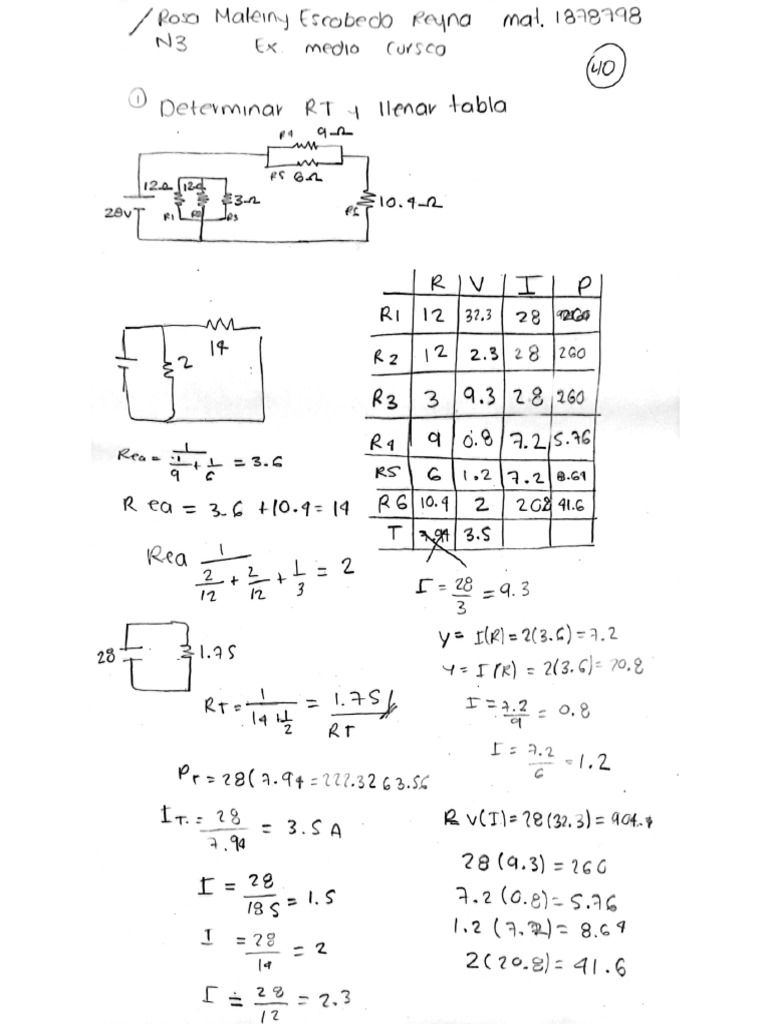 Rosa Maleiny Escobedo Reyna mat. 1878798
N3 Ex. medio cursco
40
① Determinar RT y llenar tabla
R4 9Ω
R5 6Ω
12Ω 12Ω 3Ω
28v
R1 R2 R3
R6 10.4Ω
R V I P
R1 12 32.3 28
R2 12 2.3 28 260
R3 3 9.3 28 260
R4 9 0.8 7.2 5.76
R5 6 1.2 7.2 8.64
R6 10.4 2 41.6
T 7.94 3.5
14
2
Rea = 1 / (1/9 + 1/6) = 3.6
Rea = 3.6 + 10.4 = 14
Rea 1 / (2/12 + 2/12 + 1/3) = 2
28 1.75
RT = 1 / (14 + 1/2) = 1.75 / RT
PT = 28(7.94 = 222.3263.56
IT. = 28/7.94 = 3.5A
I = 28/185 = 1.5
I = 28/14 = 2
I = 28/12 = 2.3
I = 28/3 = 9.3
y = I(R) = 2(3.6) = 7.2
y = I(R) = 2(3.6) = 20.8
I = 7.2/9 = 0.8
I = 7.2/6 = 1.2
R V(I) = 28(32.3) = 904.4
28(9.3) = 260
7.2(0.8) = 5.76
1.2(7.2) = 8.64
2(20.8) = 41.6